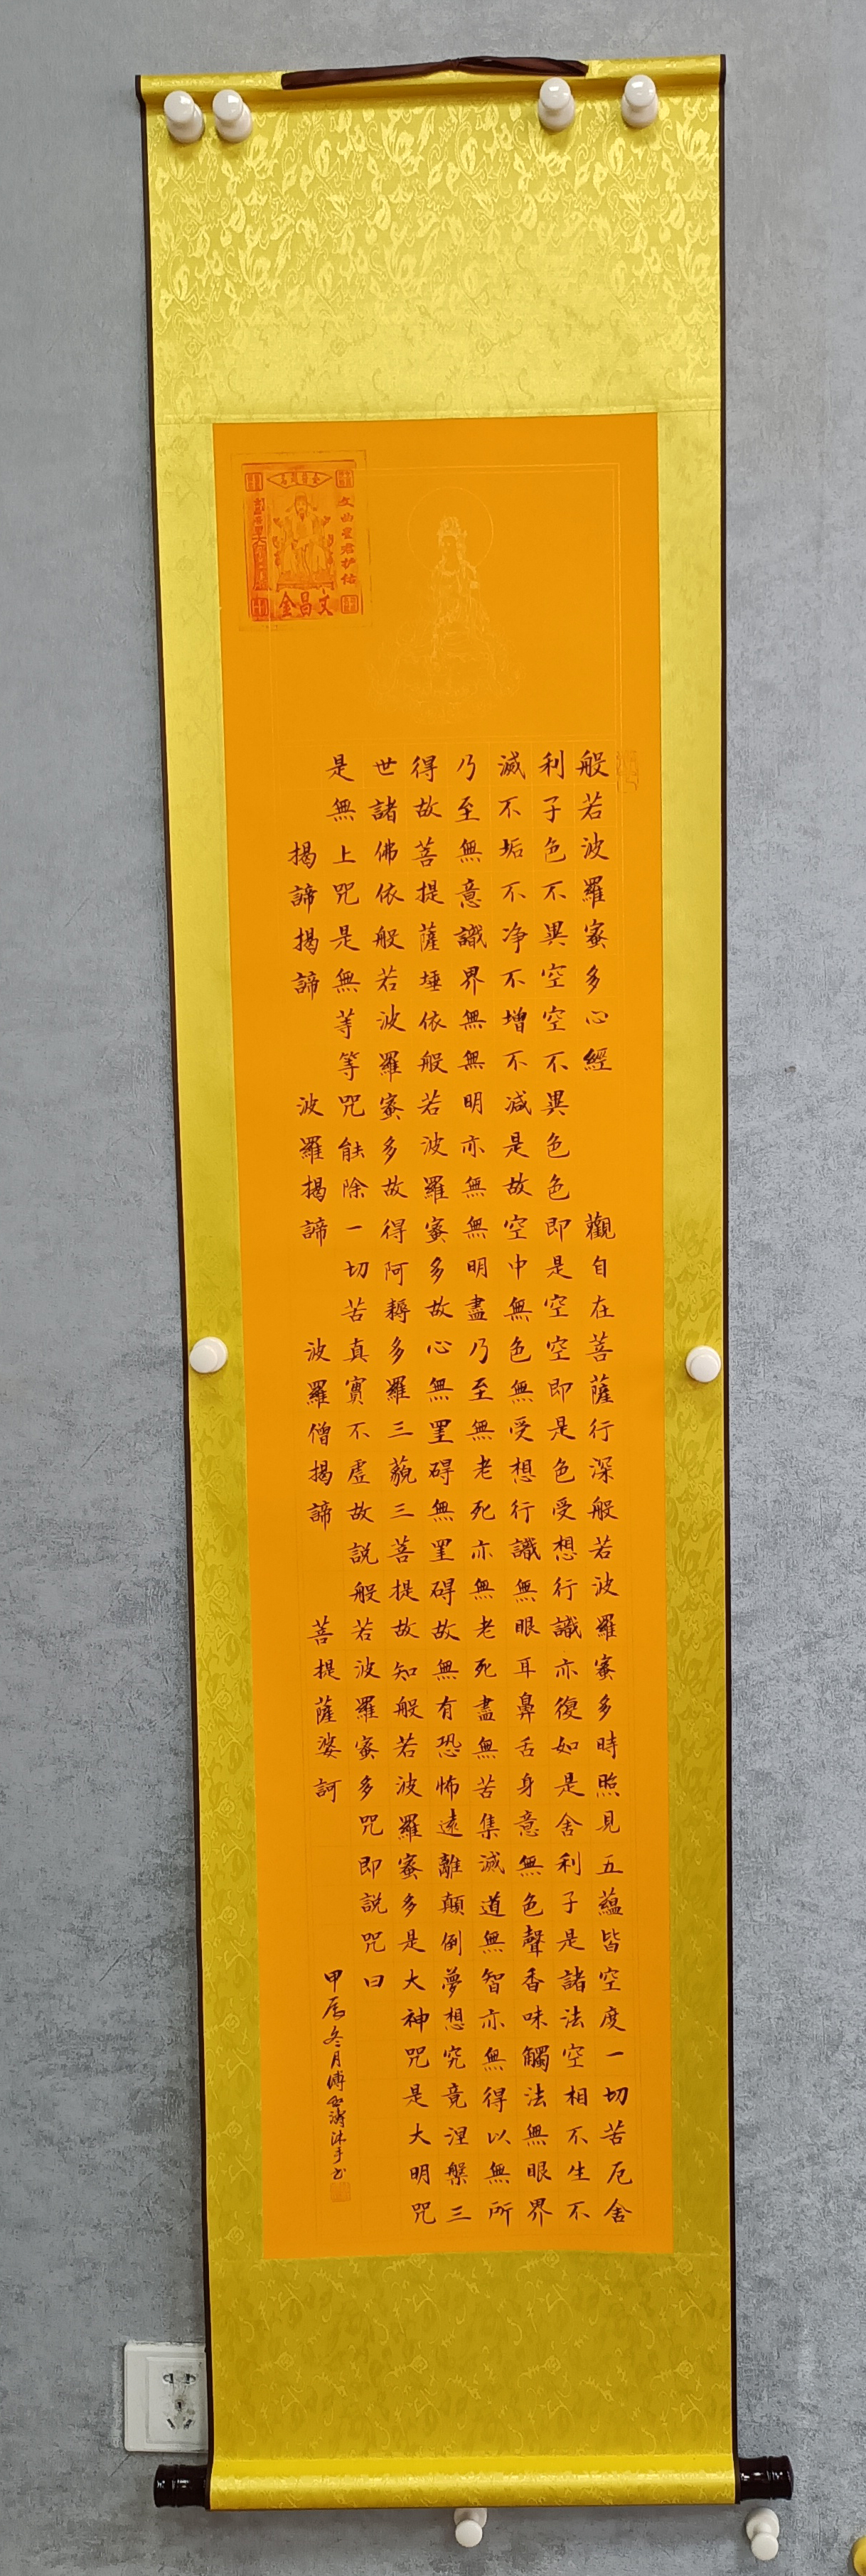 般若波羅蜜多心經　觀自在菩薩行深般若波羅蜜多時照見五蘊皆空度一切苦厄舍
利子色不異空空不異色色即是空空即是色受想行識亦復如是舍利子是諸法空相不生不
滅不垢不净不增不減是故空中無色無受想行識無眼耳鼻舌身意無色聲香味觸法無眼界
乃至無意識界無無明亦無無明盡乃至無老死亦無老死盡無苦集滅道無智亦無得以無所
得故菩提薩埵依般若波羅蜜多故心無罣碍無罣碍故無有恐怖遠離顛倒夢想究竟涅槃三
世諸佛依般若波羅蜜多故得阿耨多羅三藐三菩提故知般若波羅蜜多是大神咒是大明咒
是無上咒是無等等咒能除一切苦真實不虛故說般若波羅蜜多咒即說咒曰
揭諦揭諦　波羅揭諦　波羅僧揭諦　菩提薩婆訶
甲辰冬月傅沐手书
文曲星君护佑
文昌金